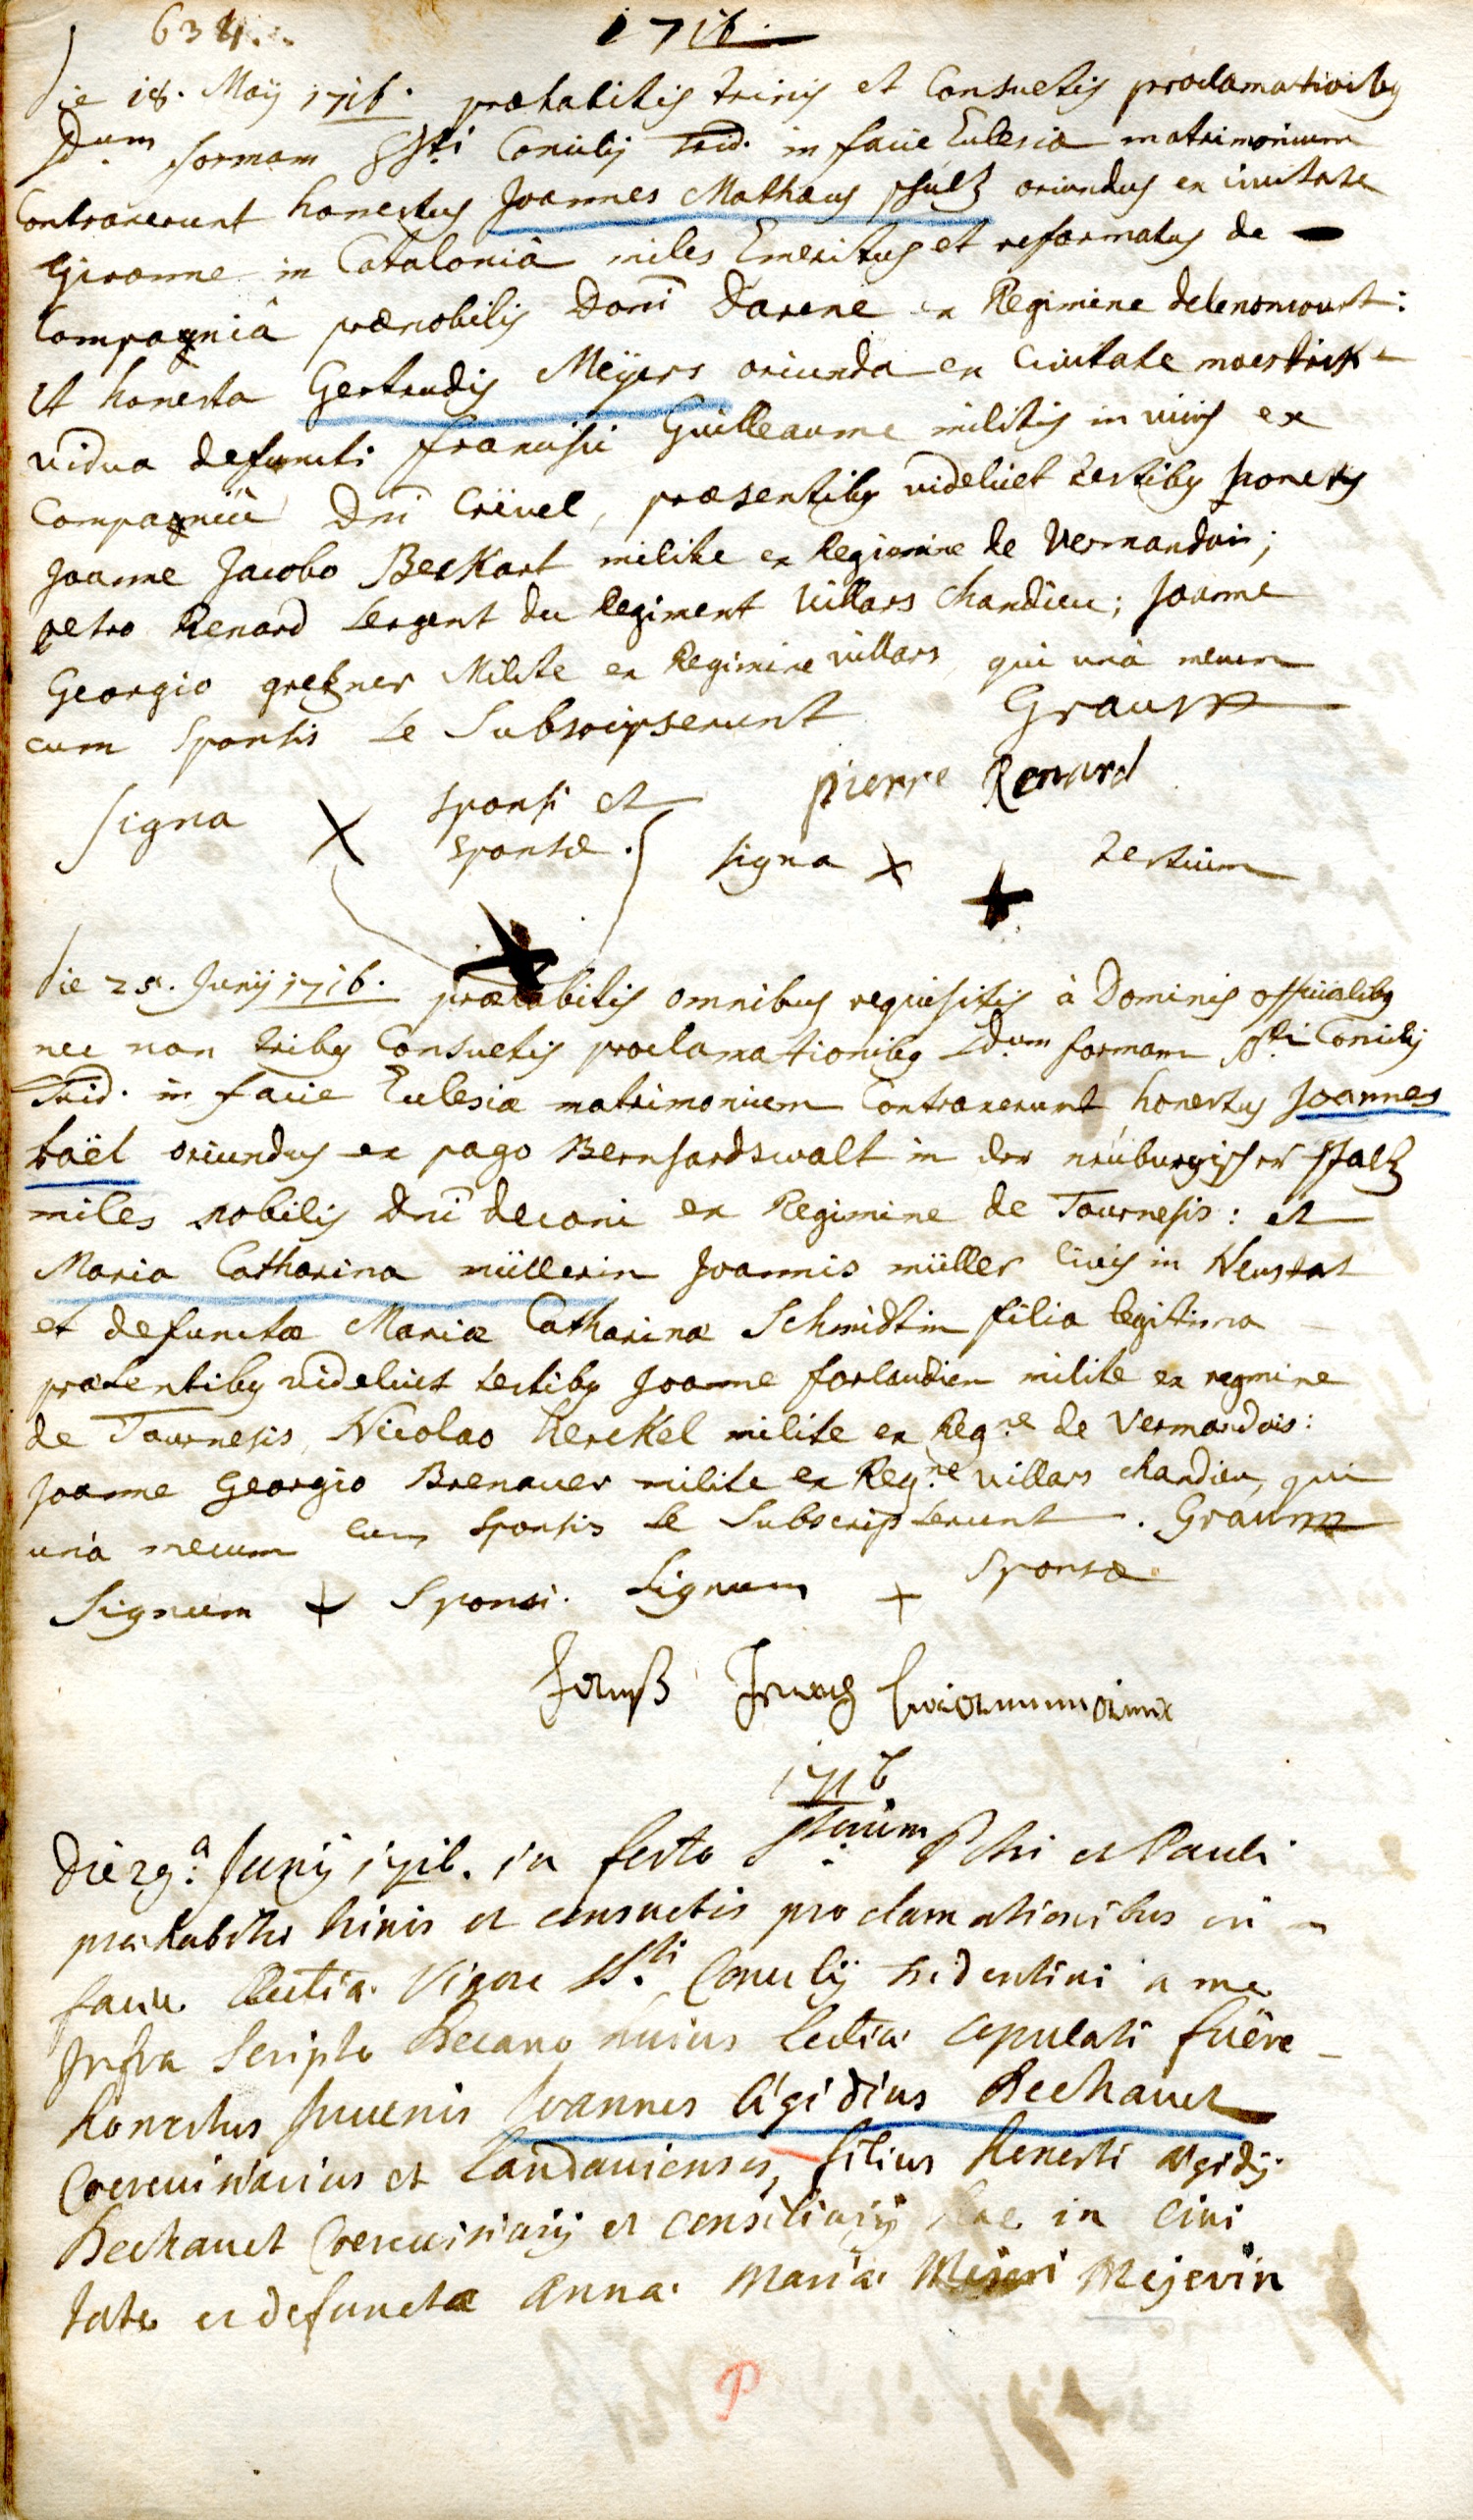 634.
1716.
Die 18. Maij 1716. præhabitis trinis et Consuetis proclamationibg
sdum formam SSti Concilij Trid. in facie Eclesiæ matrimonium
Contraxerunt honestus Joannes Mathæus oriundus ex civitate
Gironne in Catalonia miles Emeritus et reformatus de
Compagniâ prænobilis Doni Darene ex Regimine delenoncourt:
Et honesta Gertrudis Meÿers oriunda ex Civitate maestrick
vidua defuncti francisci Guilleaume militis in vivis ex
Compagniâ Dni Crivel, præsentibg videlicet testibg honestis
Joanne Jacobo Beckart milite ex Regimine de Vermandois;
petro Renard sergent du Regiment villars chandieu; Joanne
Georgio gretzner Milite ex Regimine villars qui unà mecum
cum sponsis se Subscripserunt Graux
pierre Renard
Signa X sponsi et
sponsæ. signa X + testium
Die 25. Junij 1716. præhabitis omnibus requisitis à Dominis officialibg
nec non tribg Consuetis proclamationibg sdum formam SSti Concilij
Trid. in facie Eclesiæ matrimonium Contraxerunt honestus Joannes
baël oriundus ex pago Bernhardswalt in der neuburgischen Pfaltz
miles nobilis Dni deconi ex Regimine de Tournesis: et
Maria Catharina müllerin Joannis müller civis in Neustat
et defunctæ Mariæ Catharinæ Schmidtin filia legitima
præsentibg videlicet testibg Joanne forlaudien milite ex regmine
de Tournesis, Nicolao herckel milite ex Reg.ne de Vermandois:
Joanne Georgio Brenauer milite ex Reg.ne villars chandieu, qui
unà mecum cum sponsis se Subscripserunt. Graux
Signum + Sponsi. Signum + Sponsæ
1716
Die 29.a Junij 1716. in festo SStorum Petri et Pauli
præhabitis trinis et consuetis proclamationibus in
facie Ecclesiæ vigore SS.ti Concilij tridentini a me
Infra Scripto Decano huius Eccliæ copulati fuêre
honestus Juvenis Joannes Ægidius Beckauer
Coerevisiarius et Landaviensis, filius honesti Ægidij
Beckauer Coerevisiarij et consiliarij hac in civi
tate et defunctæ Annæ Mariæ Mejerin
P